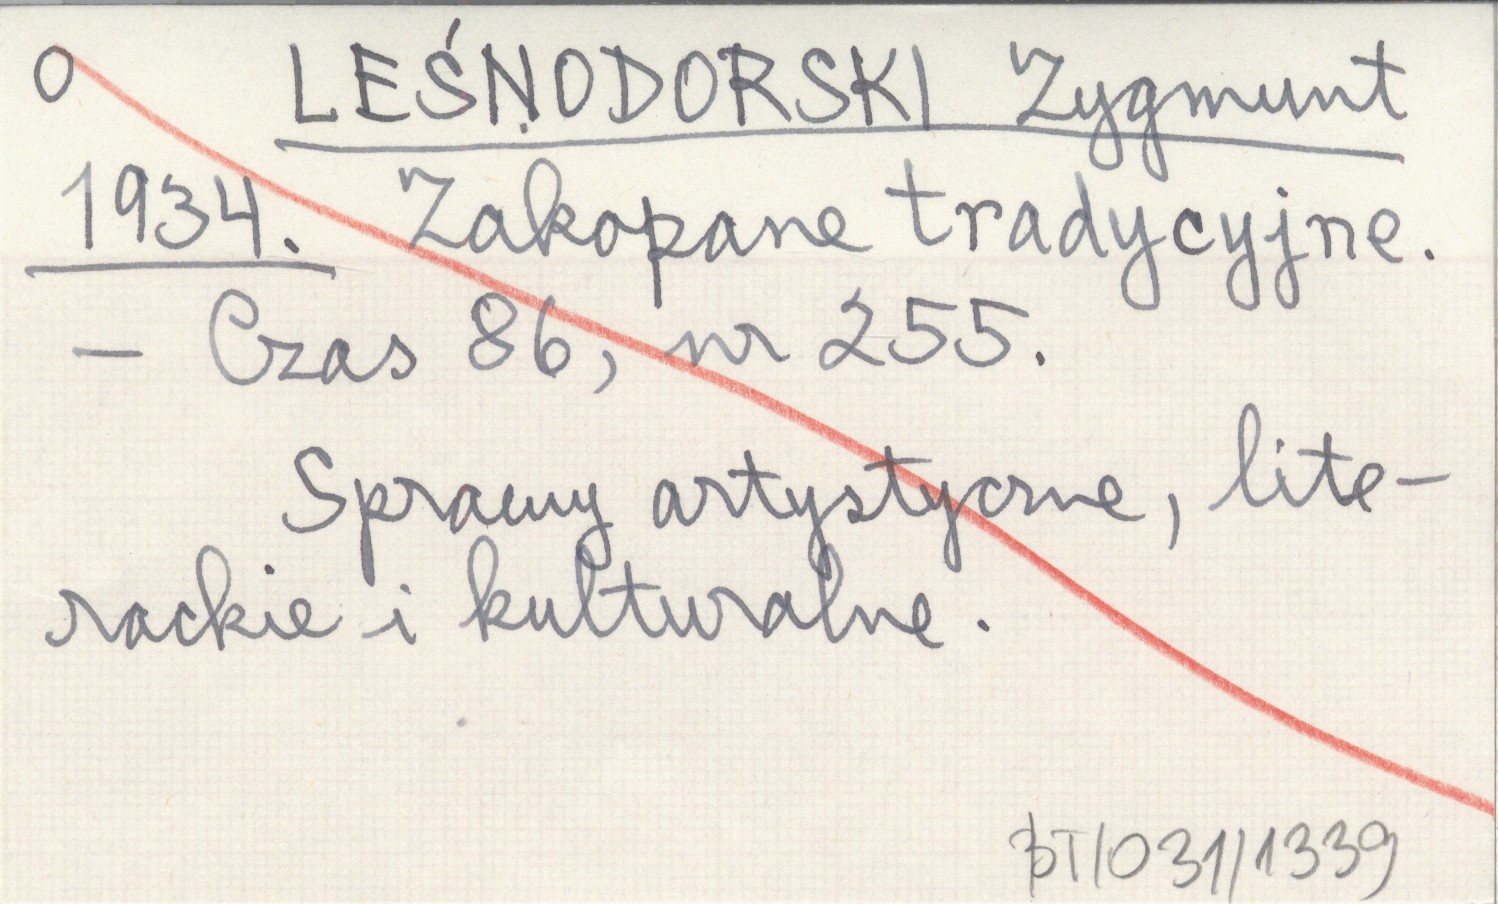 O LEŚNODORSKI Zygmunt
1934. Zakopane tradycyjne.
- Czas 86, nr 255.
Sprawy artystyczne, lite-
rackie i kulturalne.
BT/031/1339